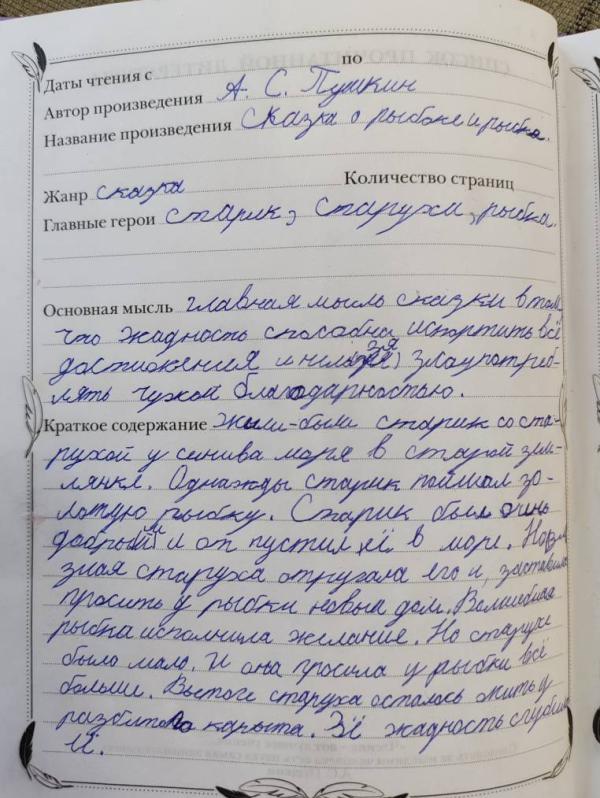 Даты чтения с по
Автор произведения А. С. Пушкин
Название произведения Сказка о рыбаке и рыбке.
Жанр сказка Количество страниц
Главные герои старик, старуха, рыбка.
Основная мысль главная мысль сказки в том,
что жадность способна испортить всё
достижения и нельзя злаупотреб-
лять чужой благодарностью.
Краткое содержание жили-были старик со ста-
рухой у синива моря в старой зем-
лянке. Однажды старик поймал зо-
лотую рыбку. Старик был очень
добрый и от пустил её в море. Но
зная старуха отругала его и, заставила
просить у рыбки новый дом. Волшебная
рыбка исполнила желание. Но старухе
было мало. И она просила у рыбки всё
больше. Вытоге старуха осталось жить у
разбитого карыта. Её жадность сгубила
её.